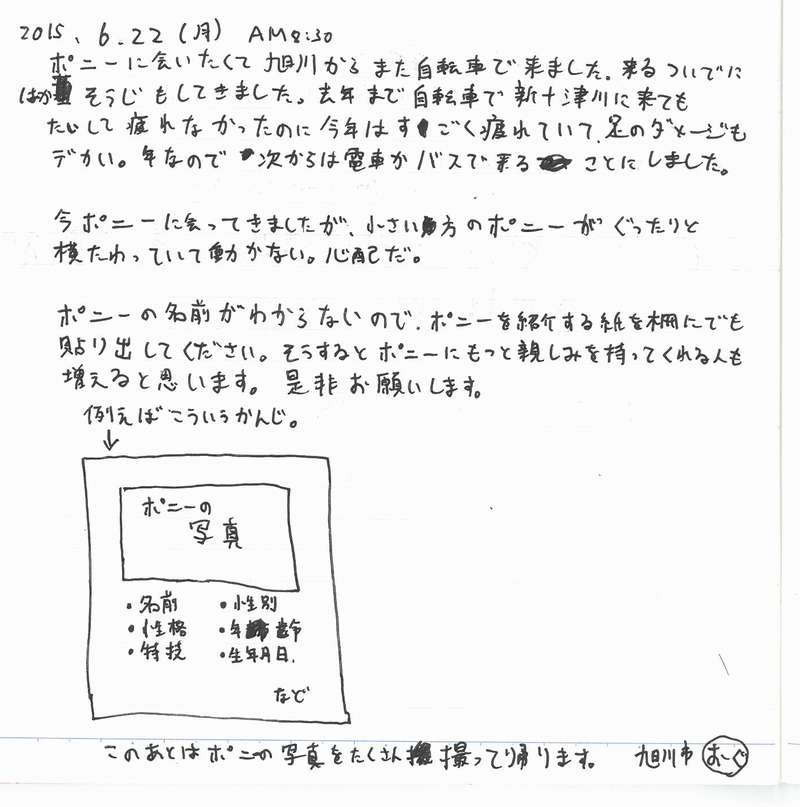 2015. 6.22(月) AM8:30
ポニーに会いたくて旭川からまた自転車で来ました。来るついでに
はかそうじもしてきました。去年まで自転車で新十津川に来ても
たいして疲れなかったのに今年はすごく疲れていて、足のダメージも
デカい。年なので次からは電車かバスで来ることにしました。
今ポニーに会ってきましたが、小さい方のポニーがぐったりと
横たわっていて動かない。心配だ。
ポニーの名前がわからないので、ポニーを紹介する紙を柵にでも
貼り出してください。そうするとポニーにもっと親しみを持ってくれる人も
増えると思います。是非お願いします。
例えばこういうかんじ。
↓
ポニーの
写真
・名前 ・性別
・性格 ・年齢
・特技 ・生年月日.
など
このあとはポニーの写真をたくさん撮って帰ります。 旭川市 おーぐ